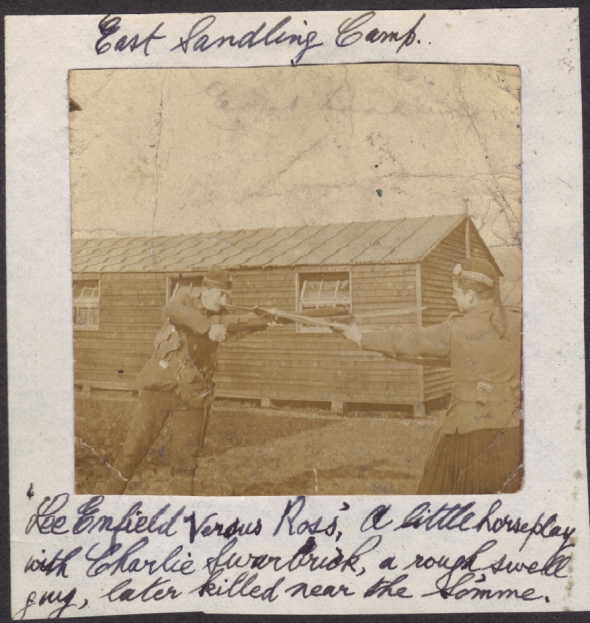 East Sandling Camp.
Lee Enfield Versus Ross', A little horseplay
with Charlie Swarbrick, a rough swell
guy, later killed near the Somme.